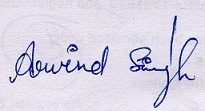 Arvind Singh